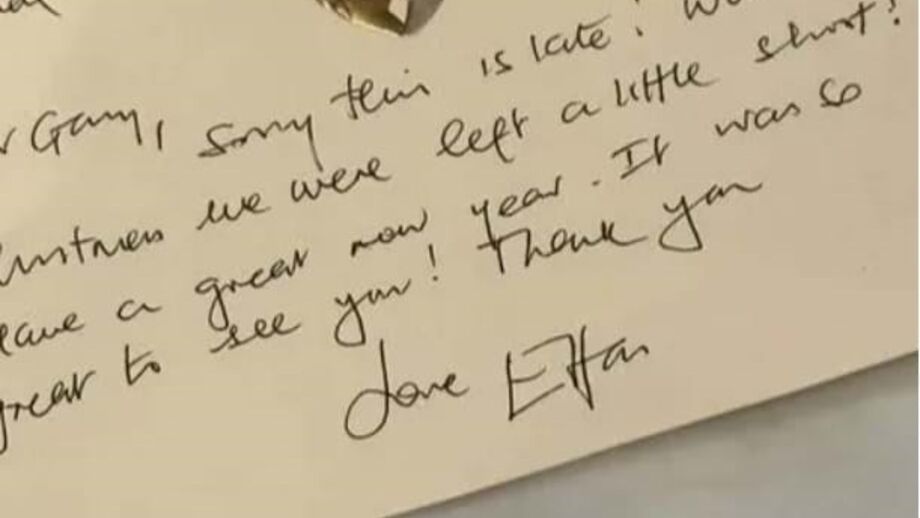 Gary, sorry this is late! W
we were left a little short!
have a great new year. It was so
great to see you! Thank you
Love